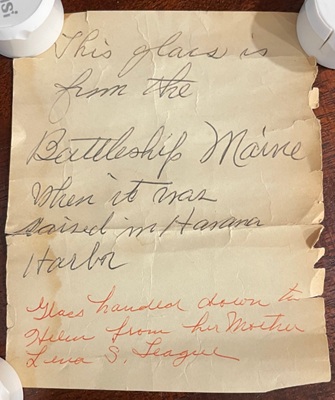 This glass is
from the
Battleship Maine
when it was
raised in Havana
Harbor
Glass handed down to
Helen from her Mother
Lena S. Teague